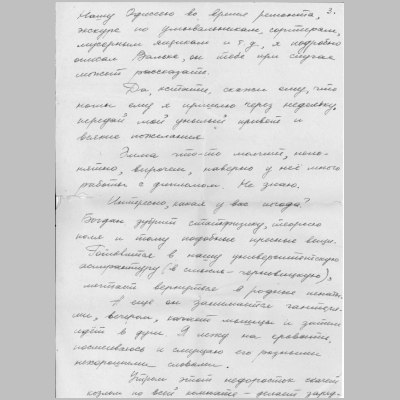 2.
нашу Одиссею во время ремонта,
экскурс по умывальникам, сортирам,
мусорным ящикам и т.д., я подробно
описал Вальке, он тебе при случае
может рассказать.
Да, кстати, скажи ему, что
ноты ему я пришлю через недельку,
передай мой унылый привет и
всякие пожелания.
Эмма что-то молчит, непо-
нятно, впрочем, наверно у неё много
работы с дипломом. Не знаю.
Интересно, какая у вас погода?
Богдан зубрит статфизику, теорию
поля и тому подобные пресные вещи.
Готовится в нашу университетскую
аспирантуру (в смысле - черновицкую),
мечтает вернуться в родные пенаты.
А ещё он занимается гантеля-
ми, вечером, качает мышцы и затем
идёт в душ. Я лежу на кровати,
посмеиваюсь и смеряю его разными
нехорошими словами.
Утром этот недоросток скачет
козлом по всей комнате - делает заряд-